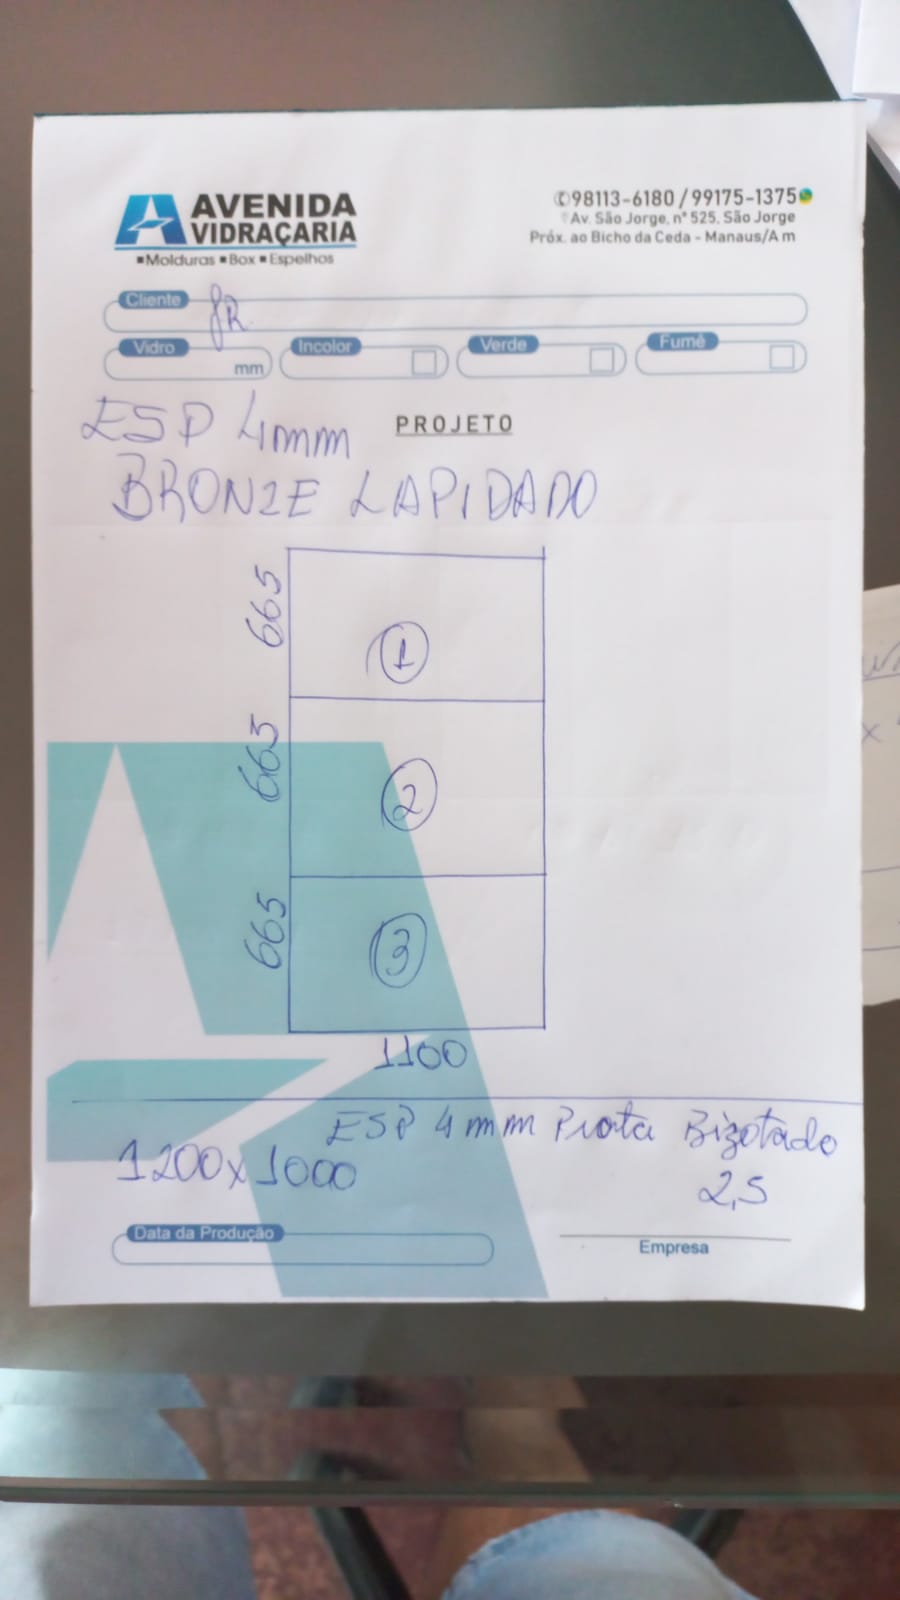 AVENIDA
VIDRAÇARIA
▪Molduras ▪Box ▪Espelhos
✆98113-6180 / 99175-1375
Av. São Jorge, nº 525, São Jorge
Próx. ao Bicho da Ceda - Manaus/Am
Cliente JR
Vidro mm Incolor Verde Fumê
ESP 4mm PROJETO
BRONZE LAPIDADO
665 1
663 2
665 3
1100
ESP 4mm Prata Bizotado
1200x1000 2,5
Data da Produção
Empresa